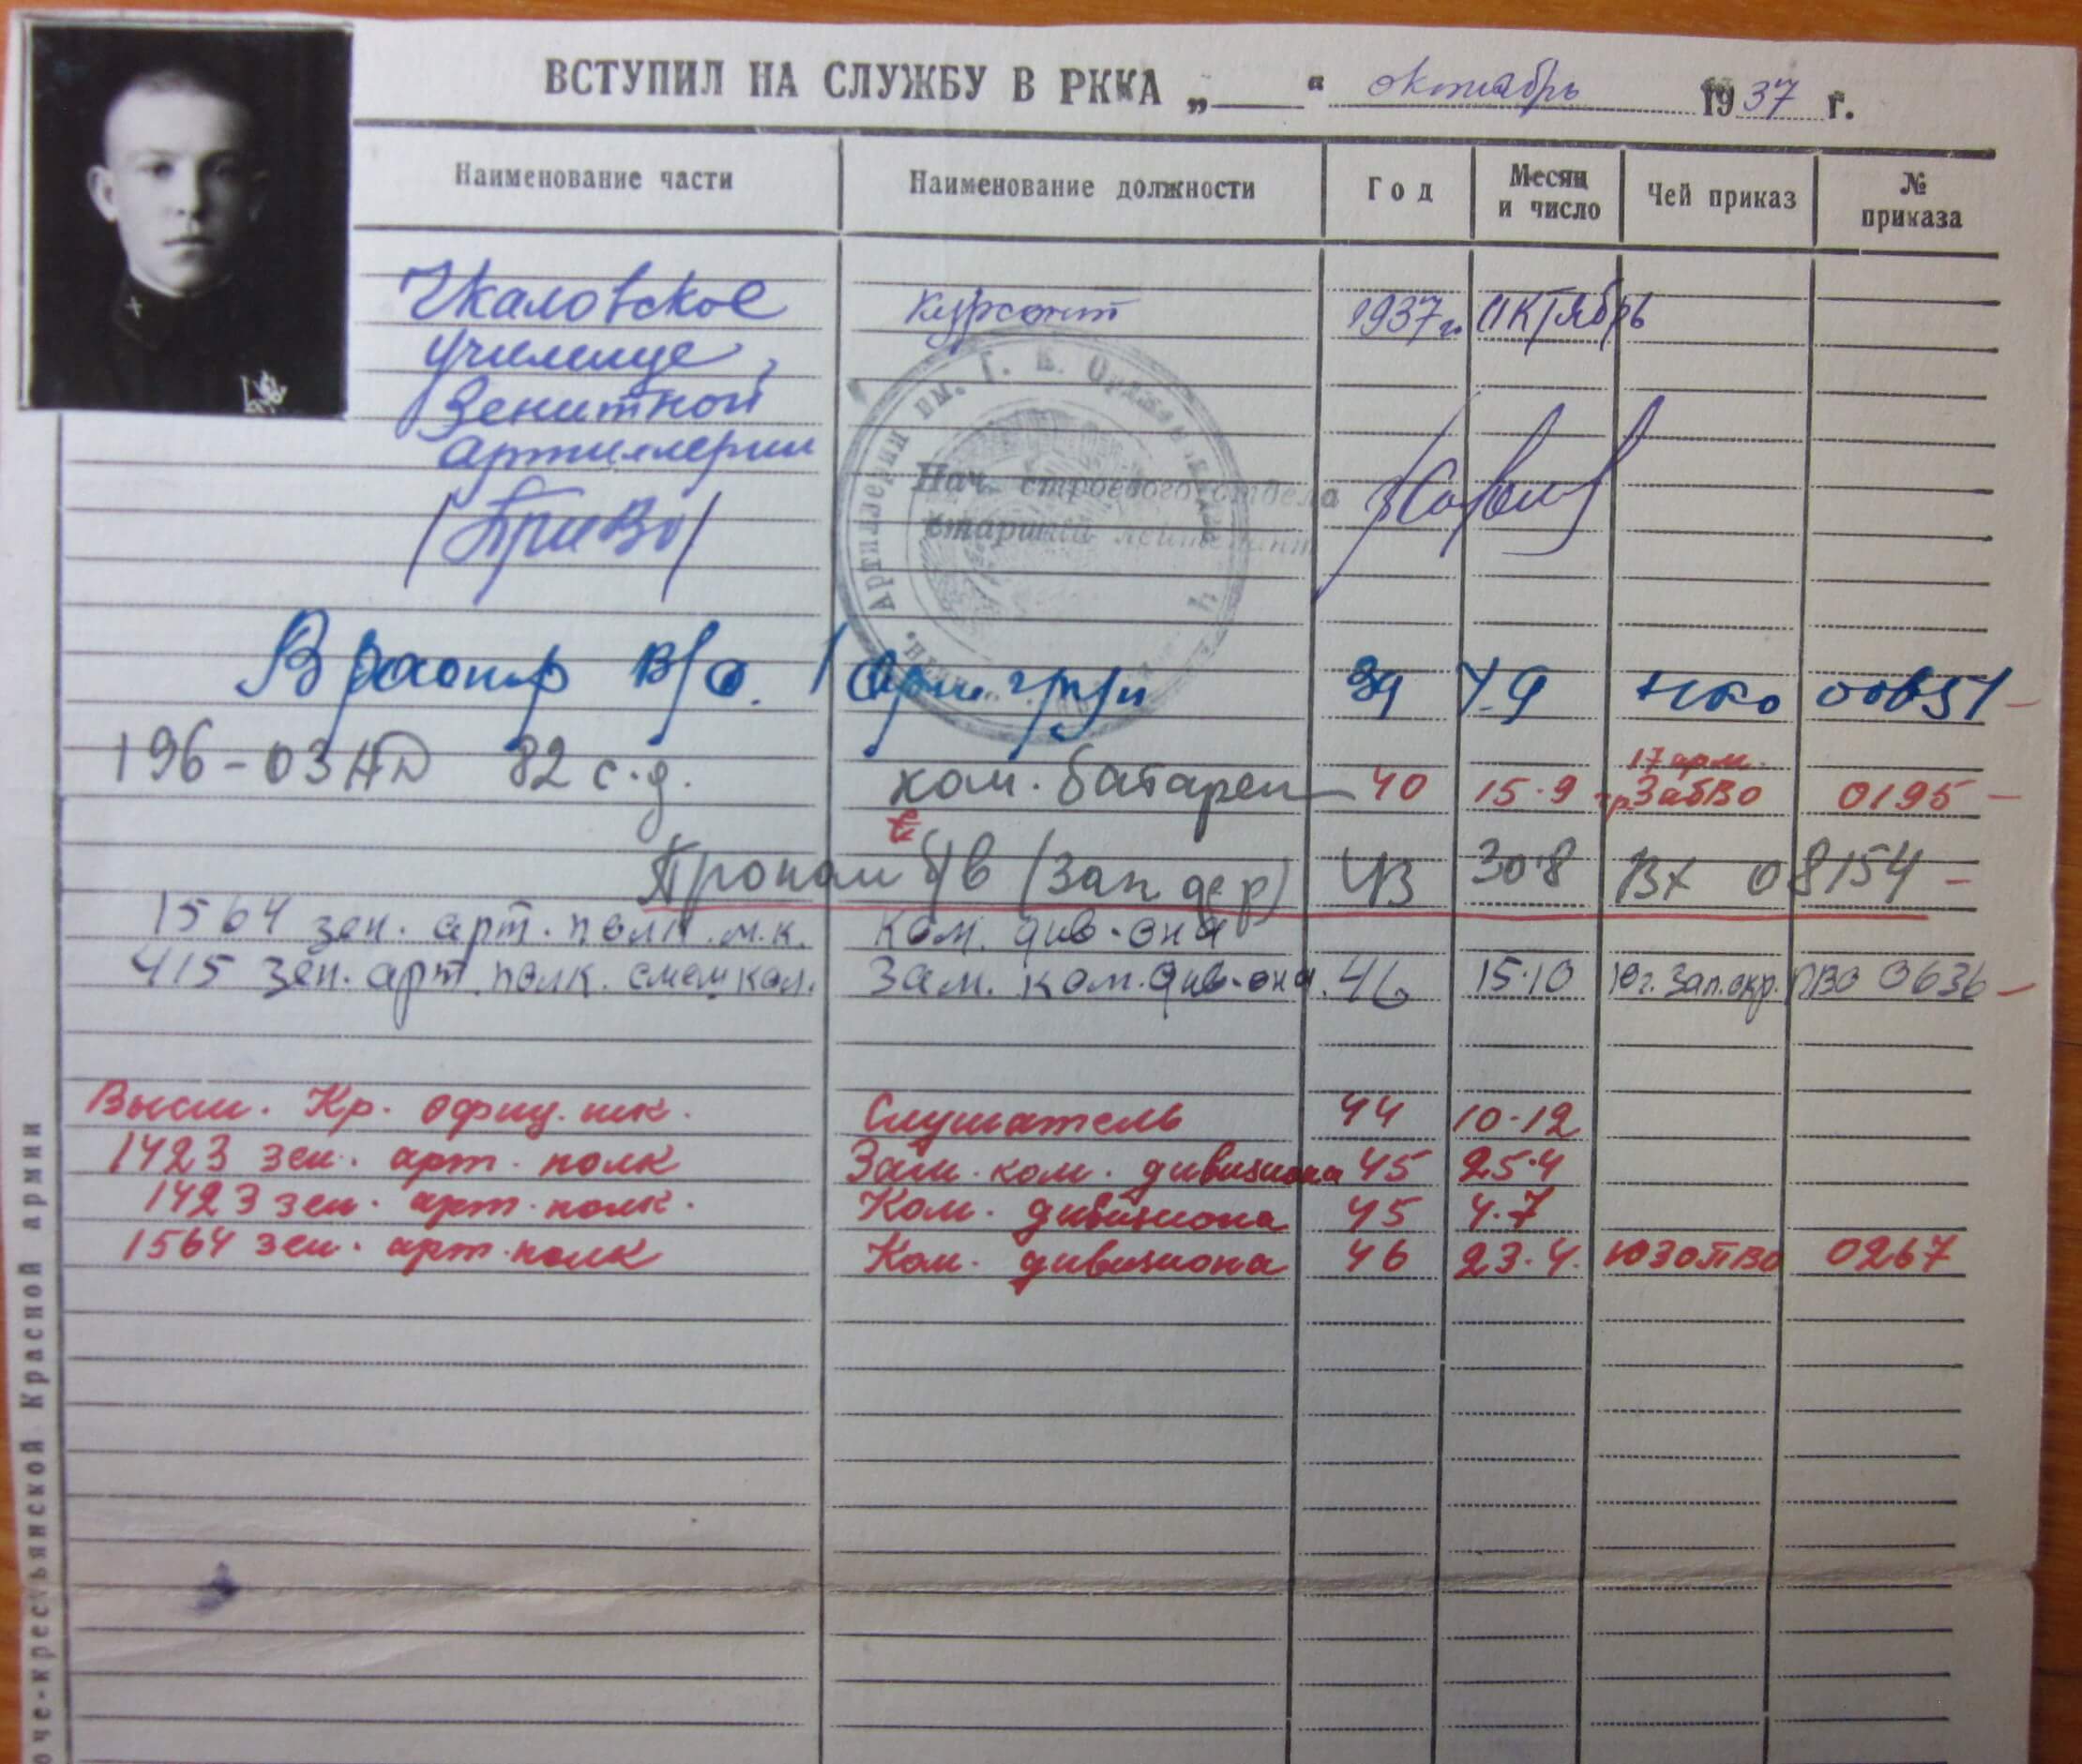 ВСТУПИЛ НА СЛУЖБУ В РККА „ “ октябрь 1937 г.
Наименование части Наименование должности Год Месяц и число Чей приказ № приказа
Чкаловское курсант 1937 г. октябрь
училище
Зенитной
артиллерии
(ПриВо)
Артиллерии им. Г. К. Орджон
Нач. строевого отдела
старший лейтенант
В распор В/с. Арт. группы 39 4.9 НКО 00651
196-ОЗАД 82 с.д. ком. батареи 40 15.9 17 арм. ЗабВО 0195
Пропал б/в (Зап дер) 43 30.8 Вх 08154
1564 зен. арт. полк м.к. Ком. див-она
415 зен. арт. полк. смеш кал. Зам. ком. див-она. 46 15.10 Юг. Зап. окр. ПВО 0636
Высш. Кр. офиц. шк. Слушатель 44 10.12
1423 зен. арт. полк Зам. ком. дивизиона 45 25.4
1423 зен. арт. полк. Ком. дивизиона 45 4.7
1564 зен. арт. полк Ком. дивизиона 46 23.4. ЮЗОПВО 0267
оче-крестьянской Красной армии